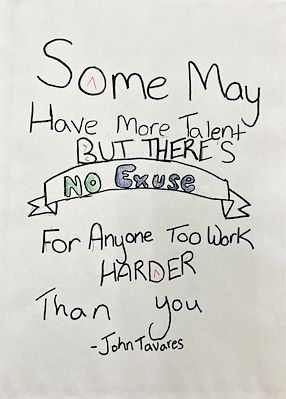 Some May
Have More Talent
BUT THERE'S
NO EXUSE
For Anyone Too Work
HARDER
Than you
-John Tavares